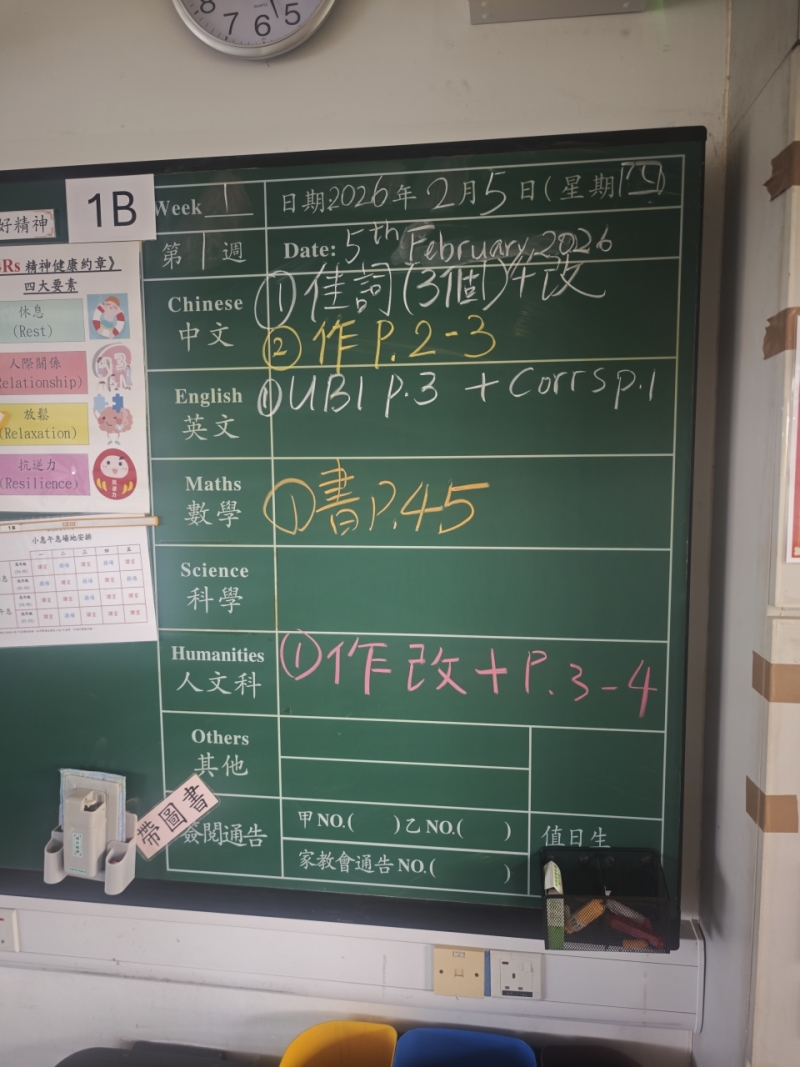 8 7 6 5
1B
好精神
Rs 精神健康約章》
四大要素
休息
(Rest)
人際關係
Relationship)
放鬆
(Relaxation)
抗逆力
(Resilience)
小息午息場地安排
一 二 三 四 五
Week 1 日期:2026年 2月5日(星期四)
第 1 週 Date: 5th February, 2026
Chinese 中文 ① 佳詞(3個)+改
② 作 P.2-3
English 英文 ① UB1 p.3 + Corrs p.1
Maths 數學 ① 書 P.45
Science 科學
Humanities 人文科 ① 作 改 + P.3-4
Others 其他
帶圖書
簽閱通告 甲 NO.( ) 乙 NO.( ) 值日生
家教會通告 NO.( )